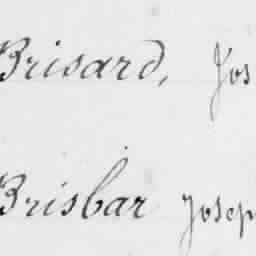 Brisard, Jos
Brisbar Josep